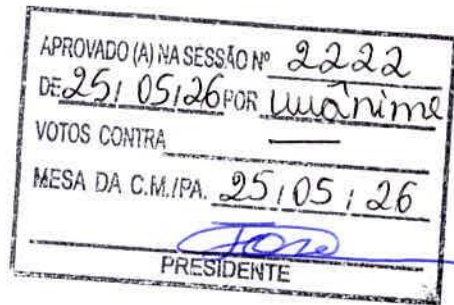 APROVADO (A) NA SESSÃO Nº 2222
DE 25/05/26 POR unânime
VOTOS CONTRA —
MESA DA C.M./PA. 25/05/26
PRESIDENTE